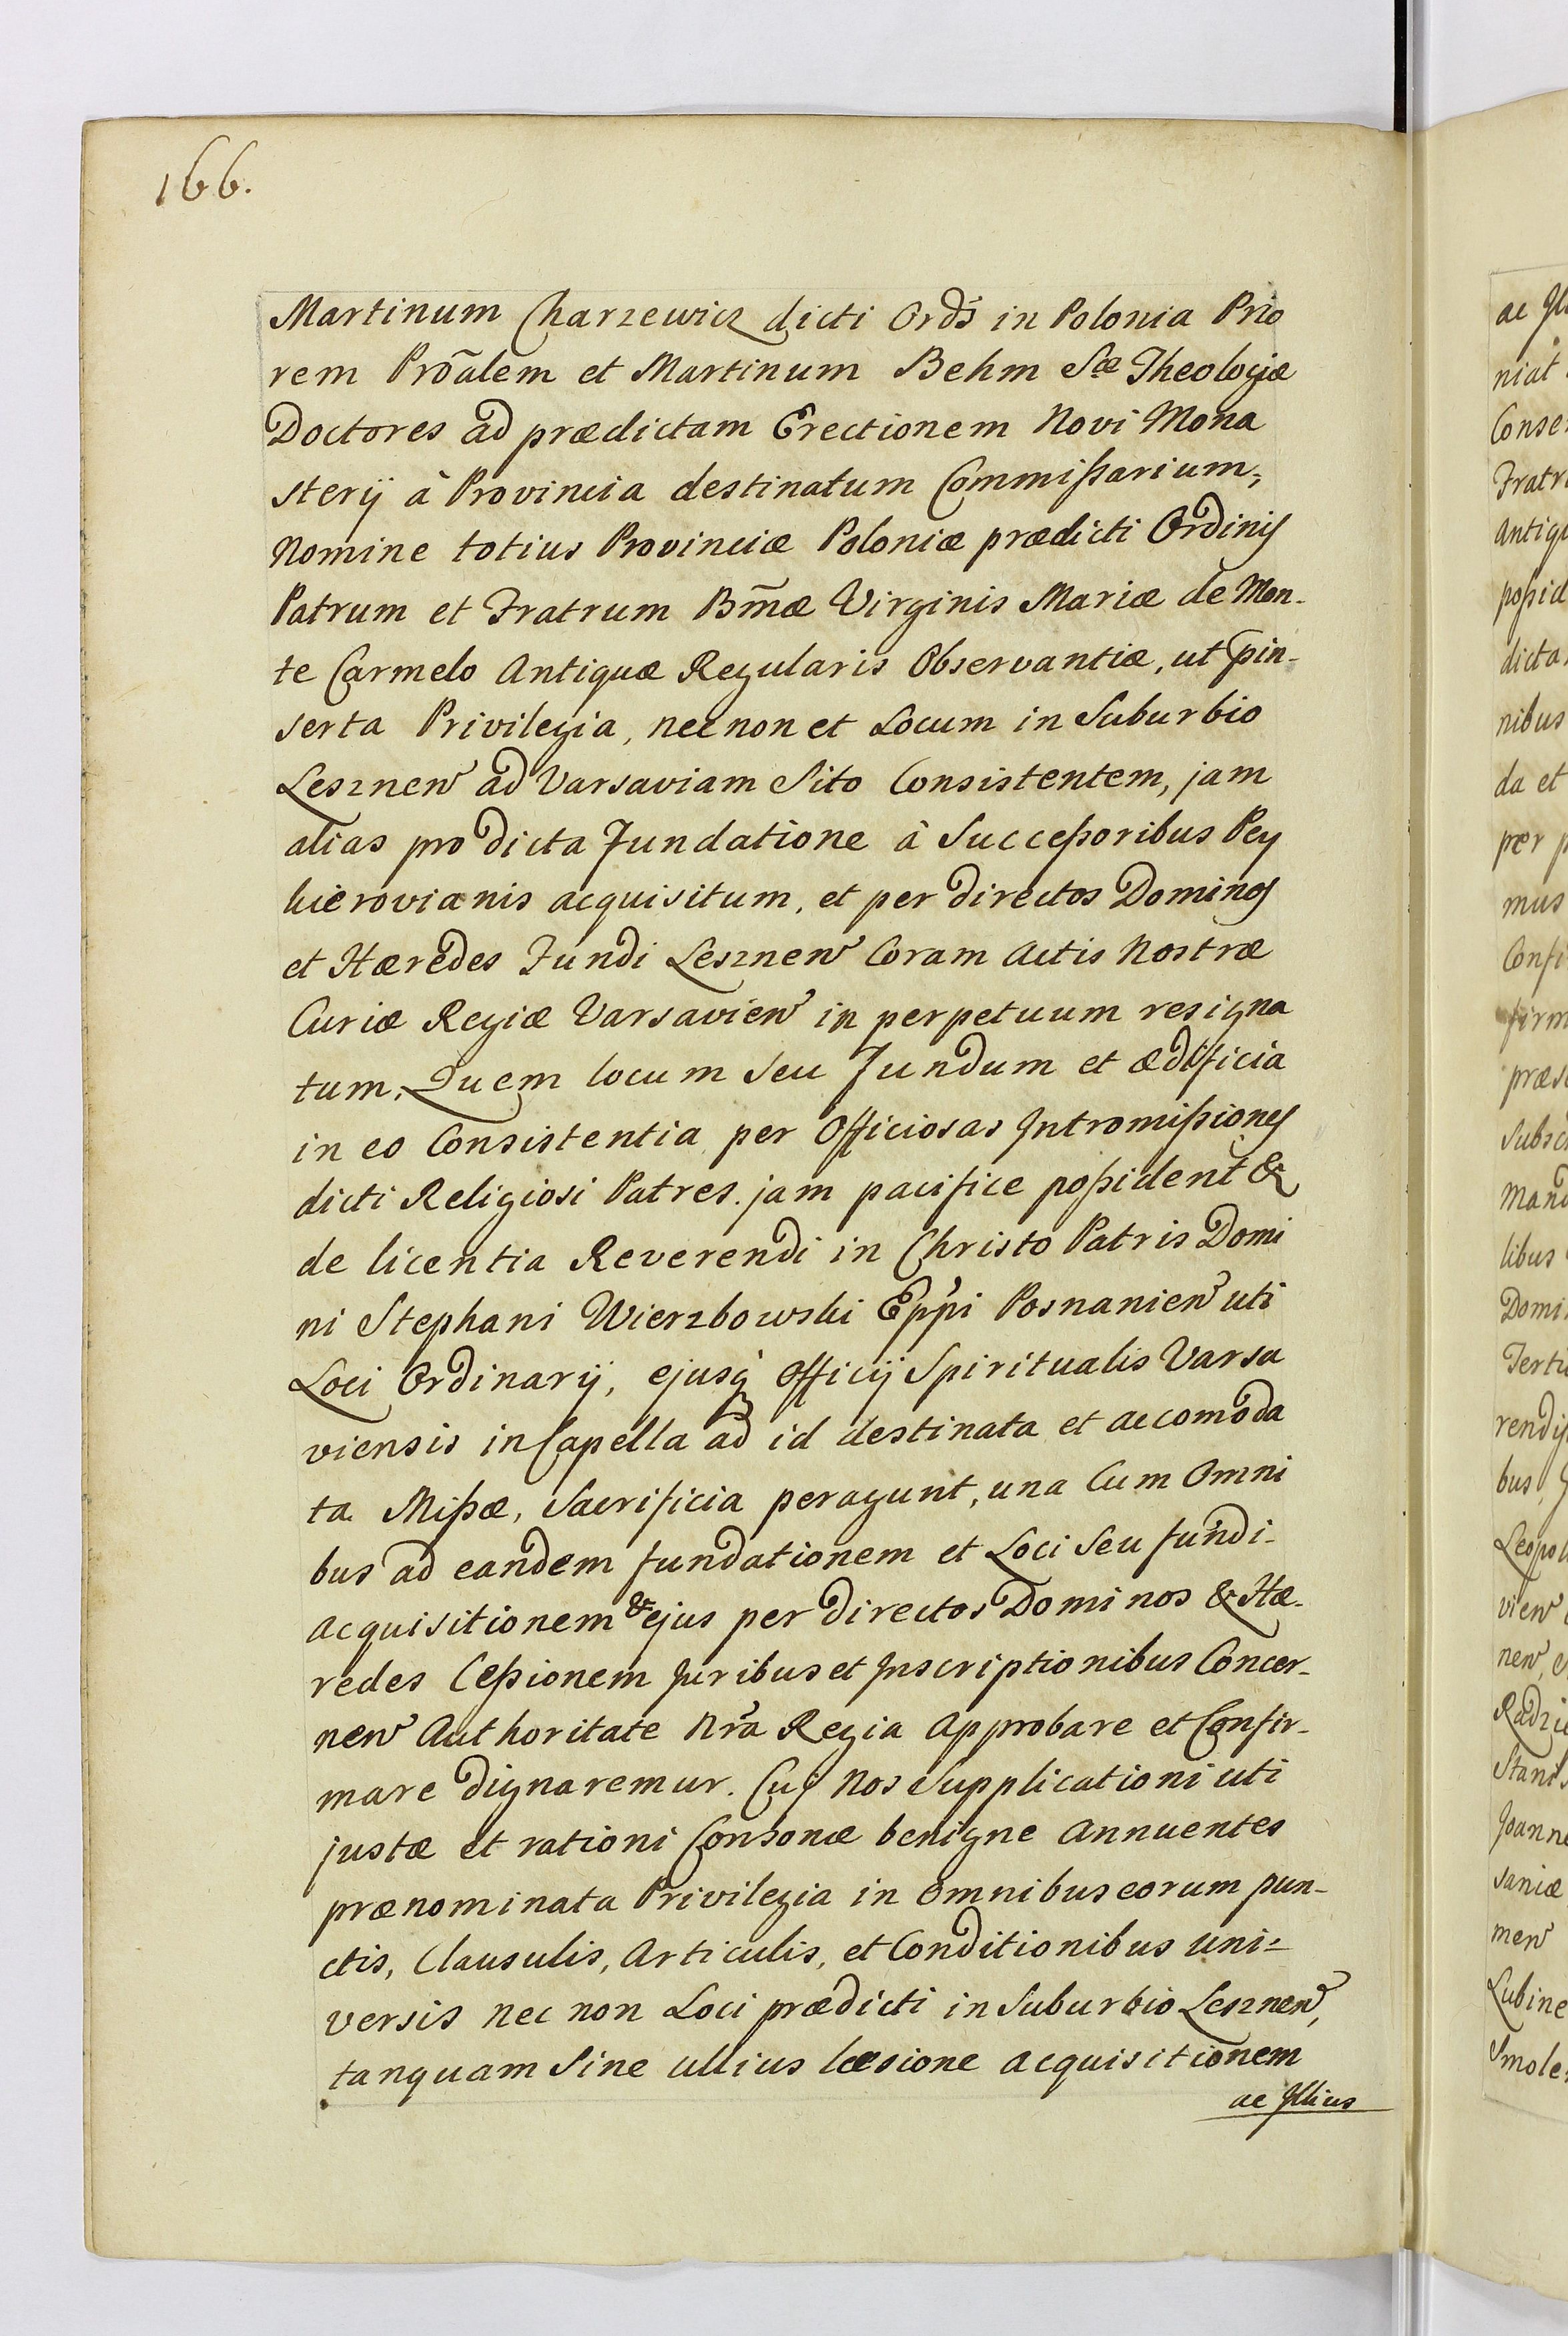 166.
Martinum Charzewicz dicti Ords in Polonia Prio
rem Prõalem et Martinum Behm Sæ Theologiæ
Doctores ad prædictam Erectionem Novi Mona
sterij â Provincia destinatum Commißarium,
Nomine totius Provinciæ Poloniæ prædicti Ordinis
Patrum et Fratrum Bm̃æ Virginis Mariæ de Mon-
te Carmelo Antiquæ Regularis Observantiæ, ut p̃in-
serta Privilegia, nec non et Locum in Suburbio
Leszneñ ad Varsaviam Sito Consistentem, jam
alias pro dicta Fundatione â Succeßoribus Pey
kierovianis acquisitum, et per directos Dominos
et Hæredes Fundi Leszneñ Coram Actis Nostræ
Curiæ Regiæ Varsavieñ in perpetuum resigna
tum, Quem locum seu Fundum et ædificia
in eo Consistentia per Officiosas Intromißiones
dicti Religiosi Patres jam pacifice poßident &
de licentia Reverendi in Christo Patris Domi
ni Stephani Wierzbowski Eppi Posnanieñ uti
Loci Ordinarij, ejusq́ Officij Spiritualis Varsa
viensis in Capella ad id destinata et accomoda
ta Mißæ, Sacrificia peragunt, una Cum Omni
bus ad eandem fundationem et Loci Seu fundi-
acquisitionem & ejus per directos Dominos & Hæ-
redes Ceßionem Juribus et Inscriptionibus Concer-
neñ Authoritate Nr̃a Regia Approbare et Confir-
mare dignaremur. Cuj Nos Supplicationi uti
justæ et rationi Consonæ benigne Annuentes
prænominata Privilegia in Omnibus eorum pun-
ctis, Clausulis, Articulis, et Conditionibus uni-
versis nec non Loci prædicti in Suburbio Leszneñ,
tanquam Sine ullius læsione acquisitionem
ac Illius